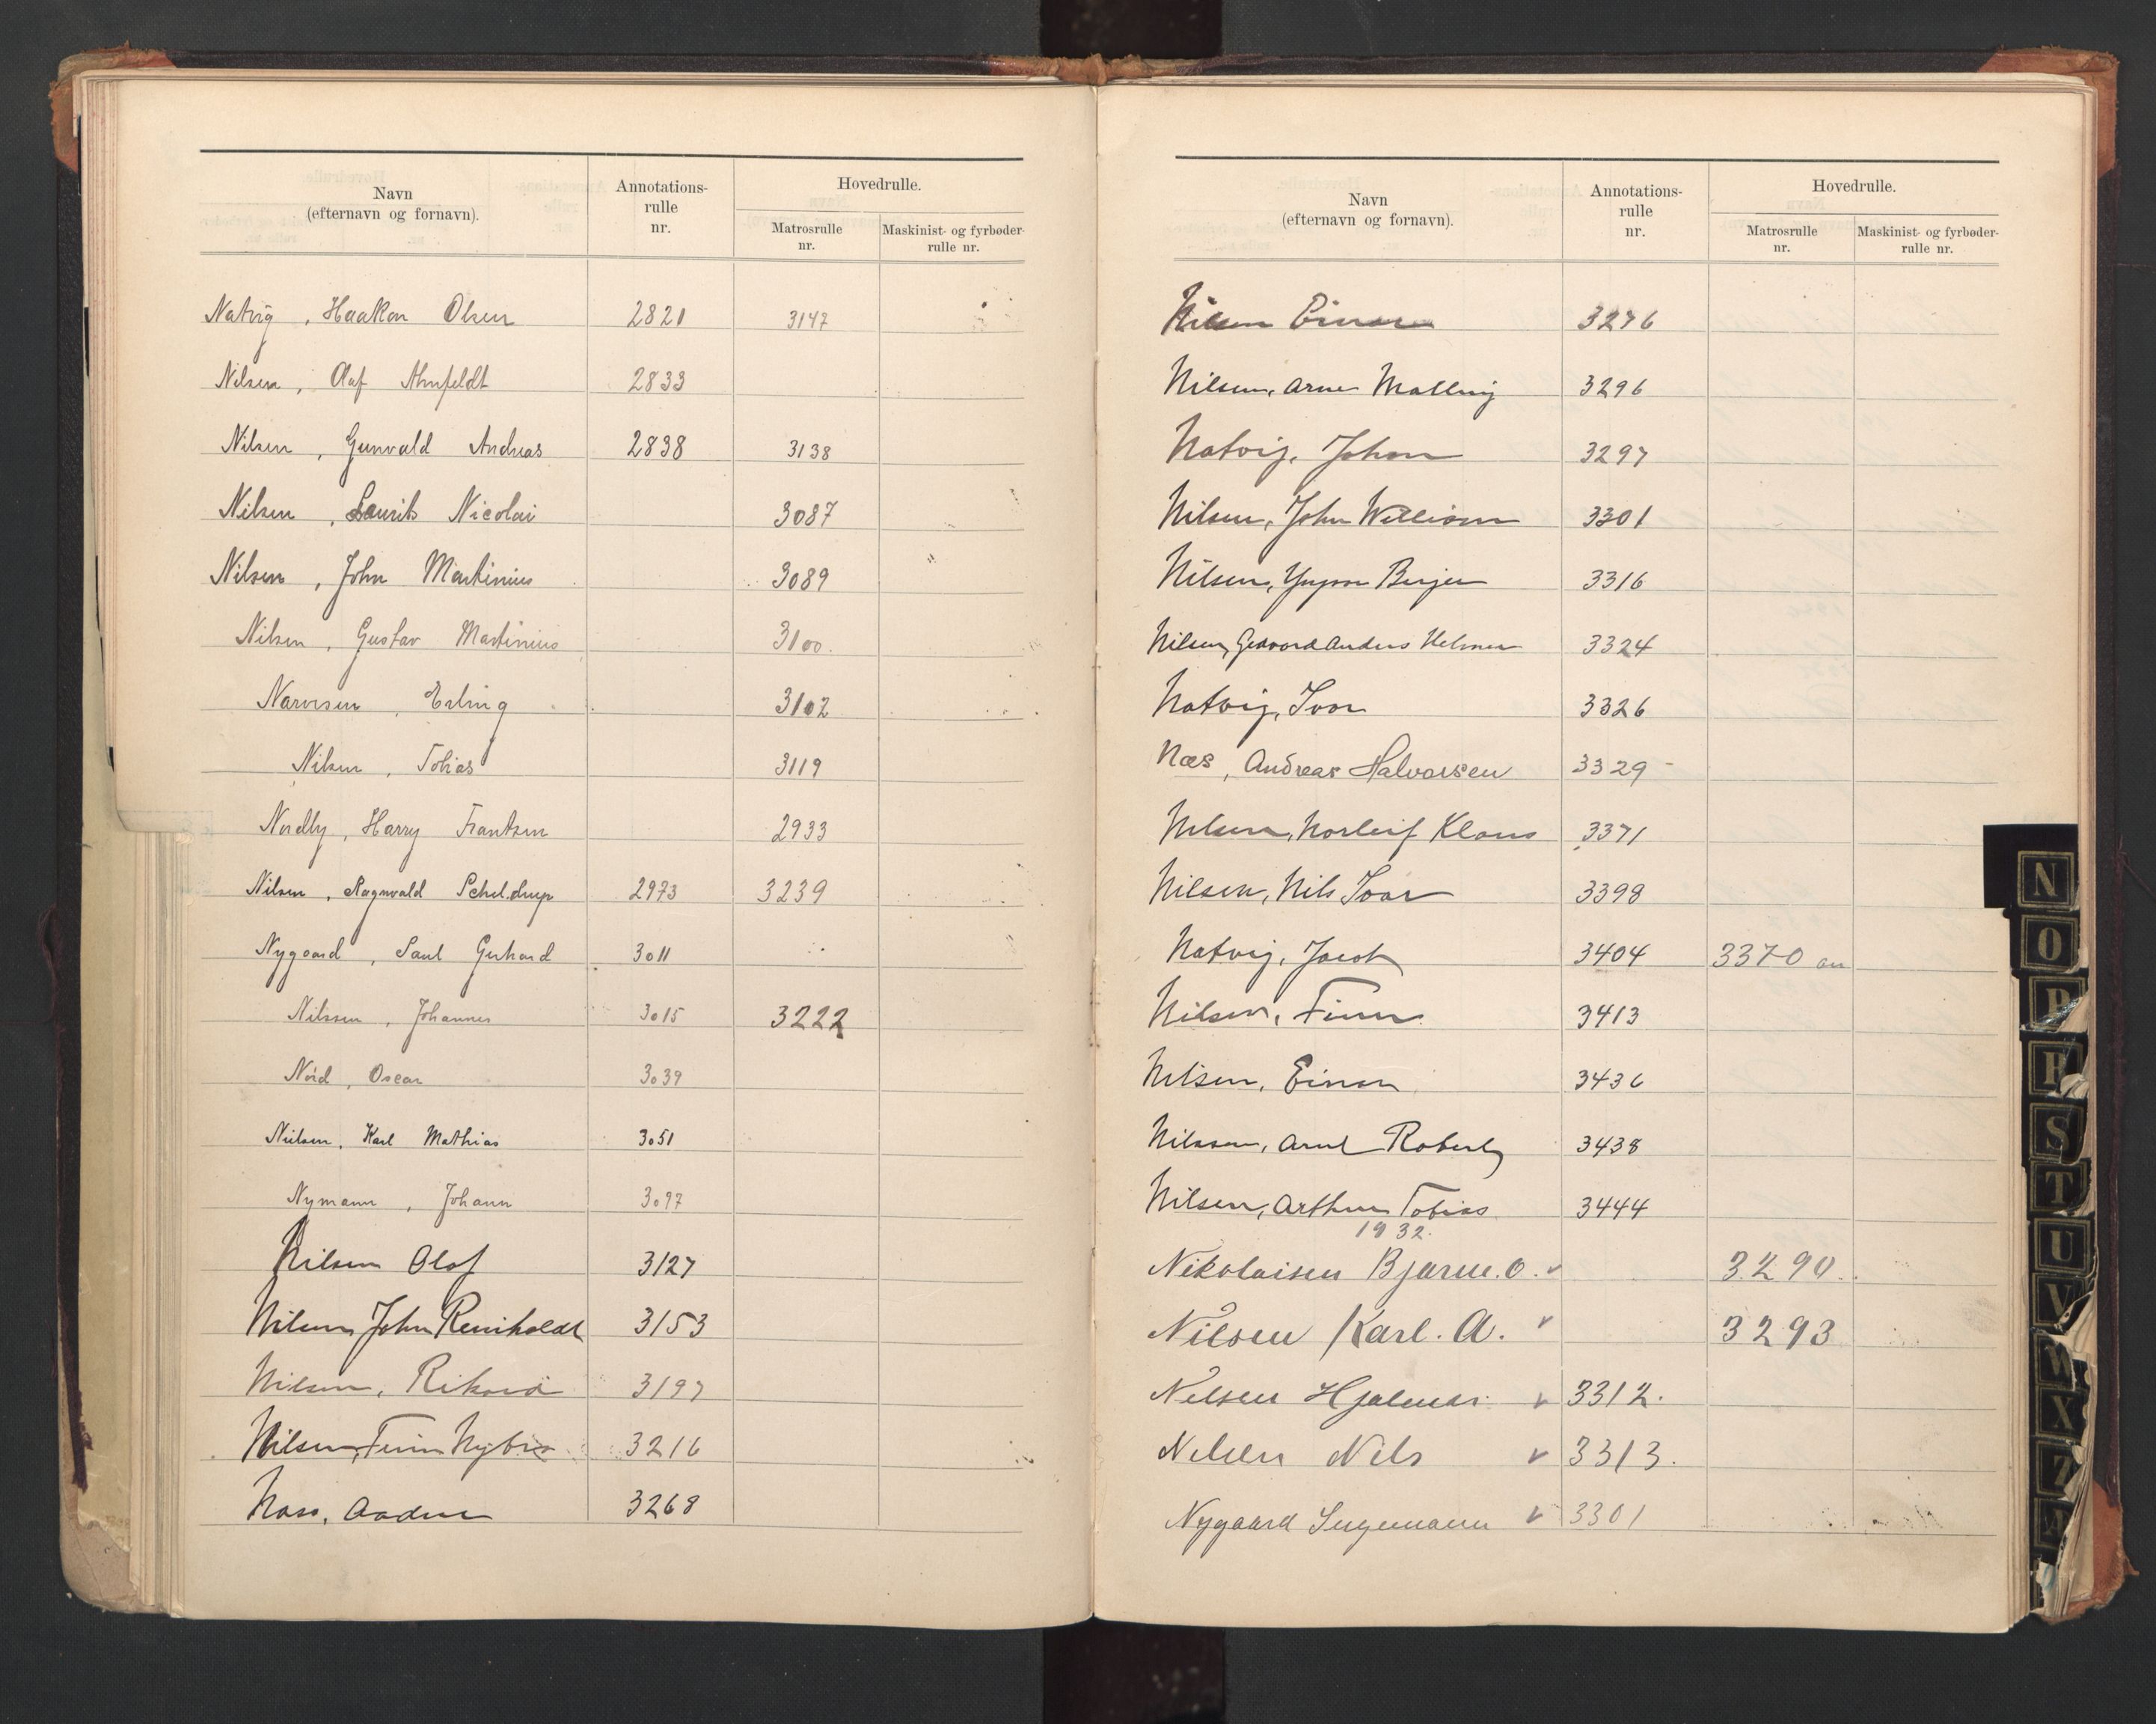 Navn
(efternavn og fornavn).
Annotations-
rulle
nr.
Hovedrulle.
Matrosrulle
nr.
Maskinist- og fyrbøder-
rulle nr.
Natvig, Haakon Olsen 2821 3147
Nilsen, Olaf 2833
Nilsen, Gunvald Andreas 2838 3138
Nilsen, Laurits Nicolai 3087
Nilsen, John Martinius 3089
Nilsen, Gustav Martinius 3100.
Narvesen, Erling 3102
Nilsen, Tobias 3119
Nordby, Harry Frantzen 2933
Nilsen, Ragnvald Scheldrup 2973 3239
Nygaard, Paul Gerhard 3011
Nilssen, Johannes 3015 3222
Nord, Oscar 3039
Nielsen, Karl Mathias 3051
Nymann, Johann 3097
Nilsen Olaf 3127
Nilsen John Reinholdt 3153
Nilsen, Rikard 3197
Nilsen, Finn Nybro 3216
Nass, 3268
Navn
(efternavn og fornavn).
Annotations-
rulle
nr.
Hovedrulle.
Matrosrulle
nr.
Maskinist- og fyrbøder-
rulle nr.
Nilsen Einar 3276
Nilsen, Arne Malling 3296
Natvig, Johan 3297
Nilsen, John William 3301
Nilsen, Birger 3316
Nilsen, Anders Helmer 3324
Natvig, Ivar 3326
Næs, Andreas Halvorsen 3329
Nilsen, Norleif Klaus 3371
Nilsen, Nils Ivar 3398
Natvig, Jacob 3404 3370 an
Nilsen, Finn 3413
Nilsen, Einar 3436
Nilssen, Arnt Robert 3438
Nilsen, Arthur Tobias 3444
1932.
Nikolaisen Bjarne. O. 3290.
Nilsen Karl. A. 3293
Nilsen Hjalmar 3312.
Nilsen Nils 3313.
Nygaard Ingemann 3301
N
O
P
R
S
T
U
V
W
X
Z